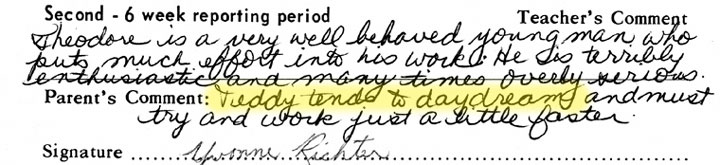 Second - 6 week reporting period Teacher's Comment
Theodore is a very well behaved young man who
puts much effort into his work. He is terribly
enthusiastic and many times overly serious.
Parent's Comment: Teddy tends to daydream and must
try and work just a little faster.
Signature ........ Yvonne Richter